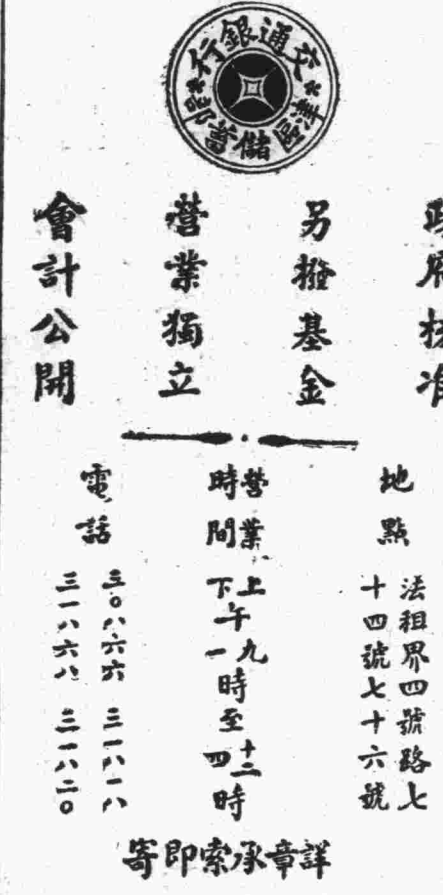 交通銀行
津區儲蓄部
政府核准
另撥基金
營業獨立
會計公開
地點
法租界四號路七
十四號七十六號
營業
時間
上午九時至十二時
下午一時至四時
電話
三〇八六六 三一八一八
三一八六八 三一八二〇
詳章承索即寄